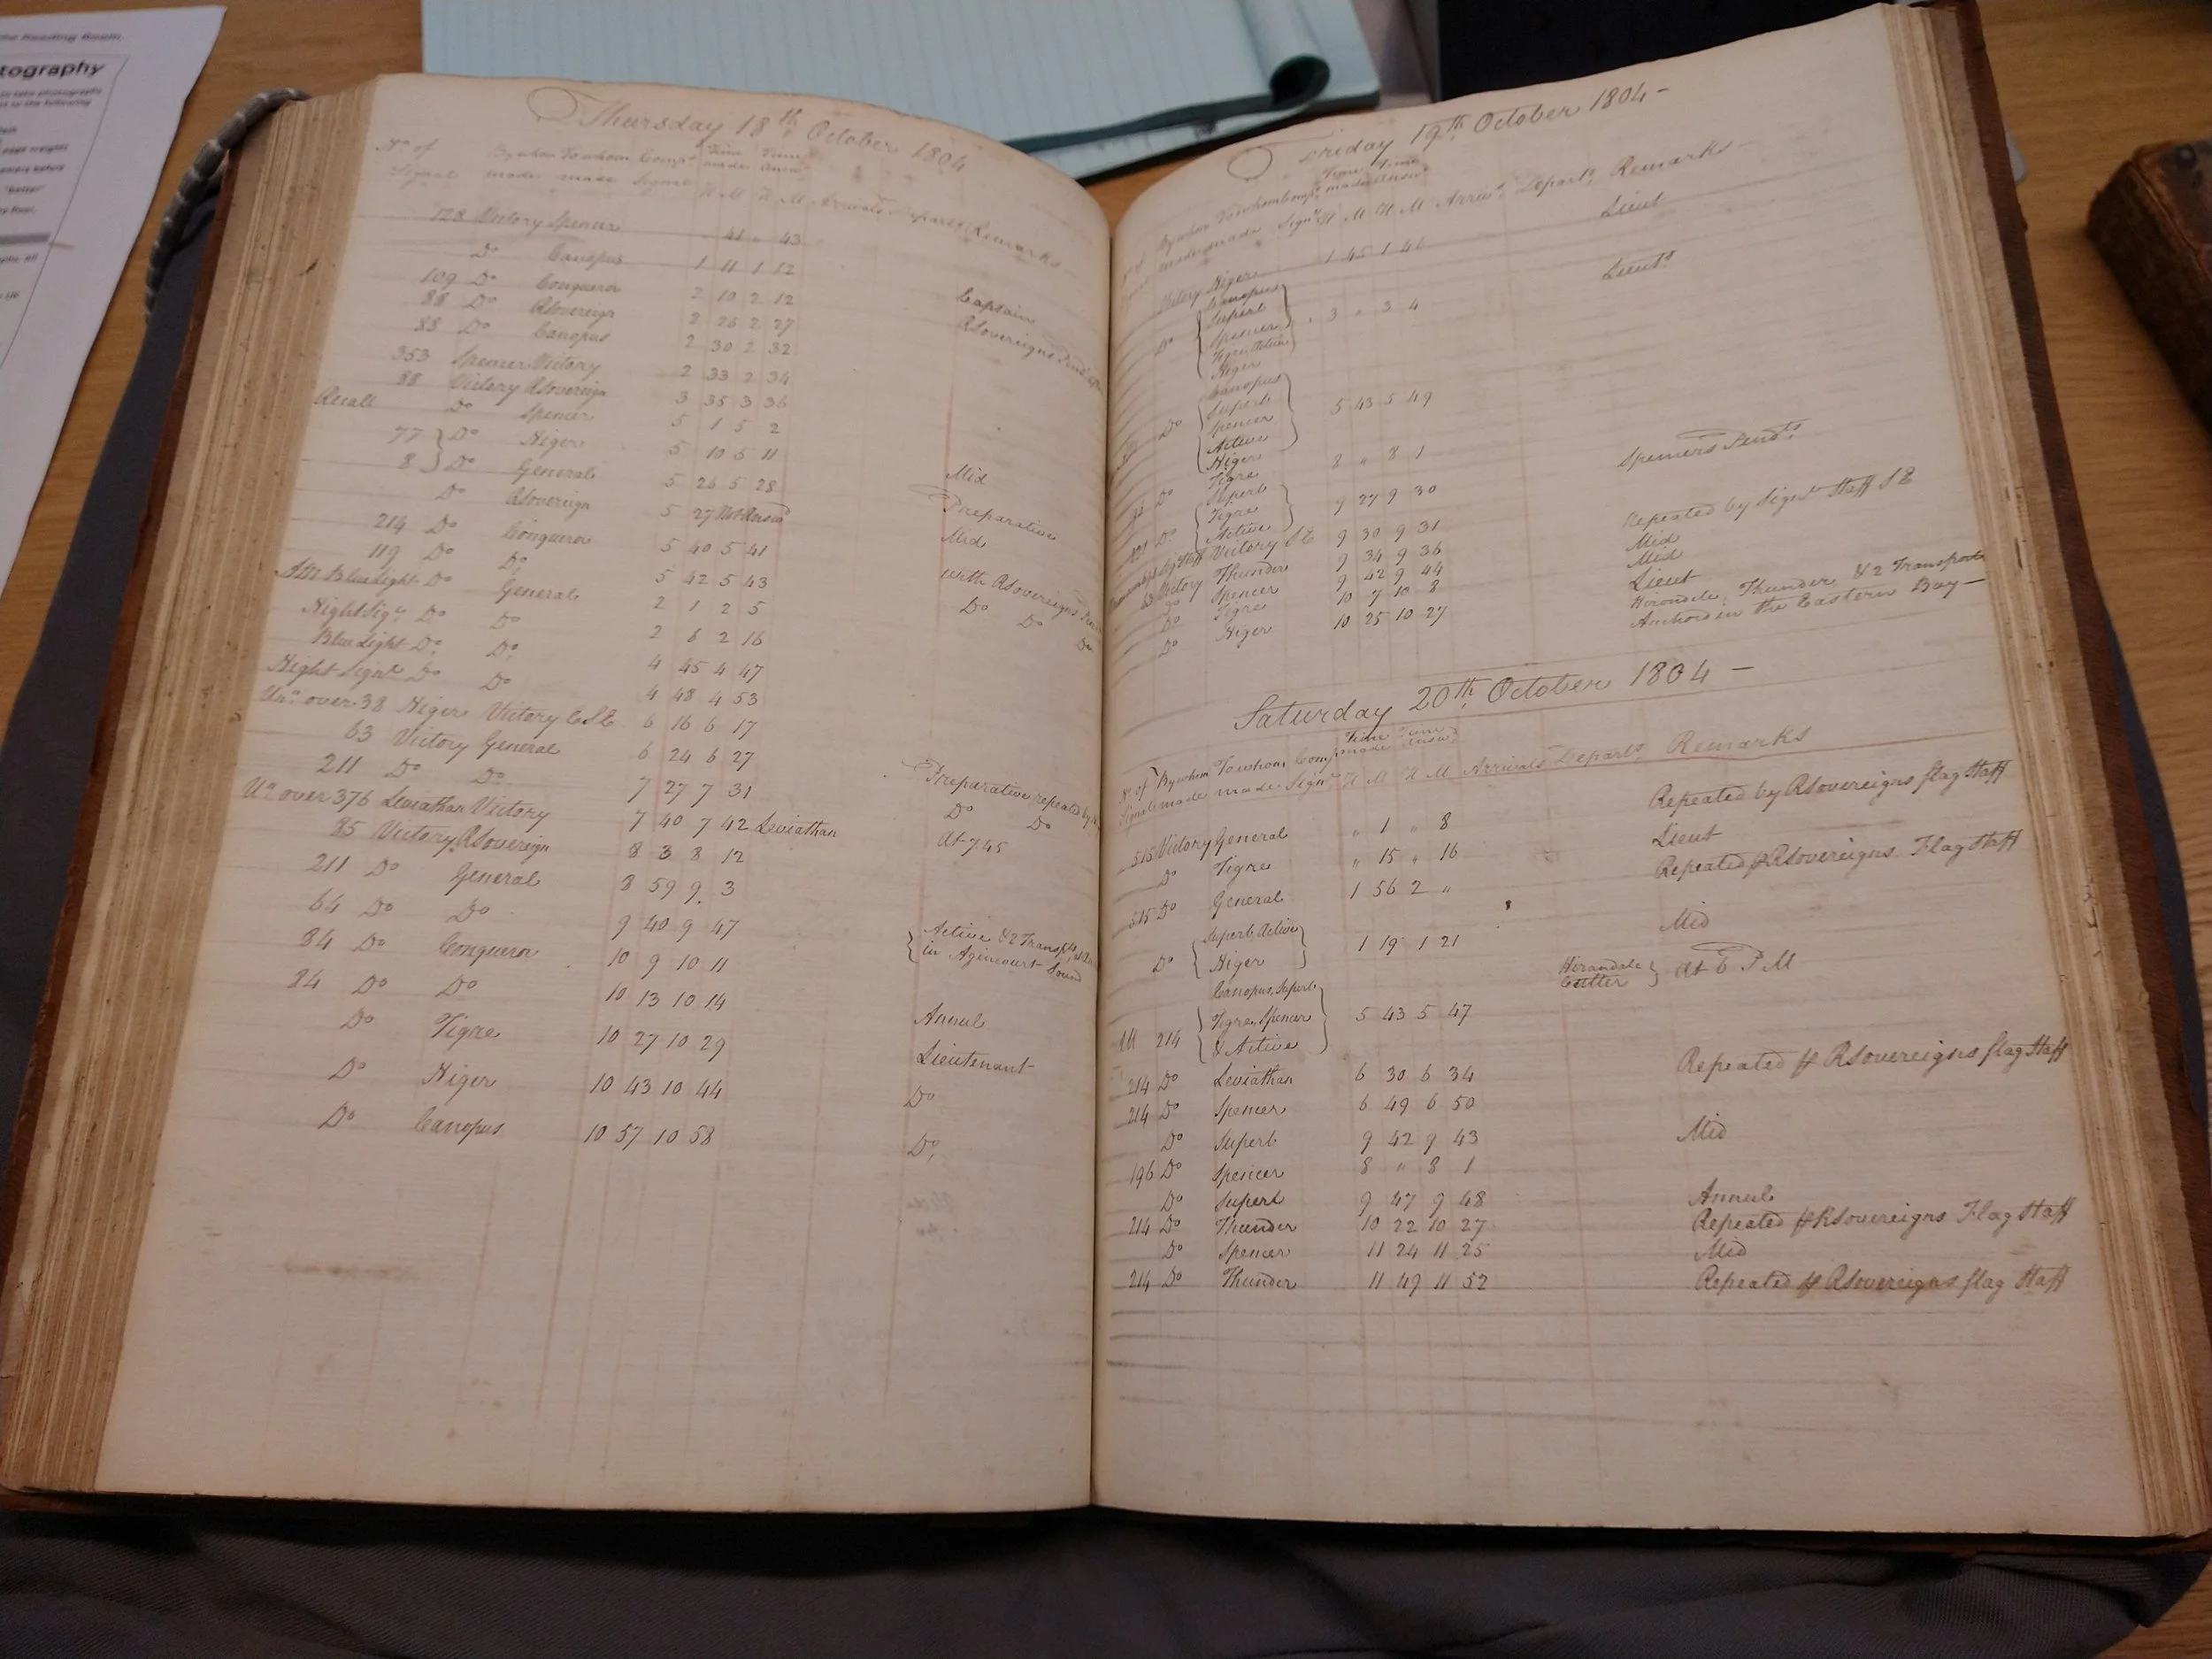 the Reading Room
tography
to take photographs
to the following
"better"
Thursday 18th October 1804
No of By whom To whom Compt Time Time
Signal made made Signal made answd
H M H M Arrivals Departs Remarks
128 Victory Spencer " 41 " 43
Do Canopus 1 11 1 12
109 Do Conqueror 2 10 2 12 Captain
88 Do RSovereign 2 26 2 27 RSovereigns
88 Do Canopus 2 30 2 32
353 Spencer Victory 2 33 2 34
88 Victory RSovereign 3 35 3 36
Recall Do Spencer 5 1 5 2
77 } Do Niger 5 10 5 11 Mid
8 } Do General 5 26 5 28 Preparative
Do RSovereign 5 27 Not Answd Mid
214 Do Conqueror 5 40 5 41 with RSovereigns
119 Do Do 5 42 5 43 Do Do Do
AM Blue Light Do General 2 1 2 5
Night Sigl Do Do 2 6 2 16
Blue Light Do Do 4 45 4 47
Night Signl Do Do 4 48 4 53
Un over 38 Niger Victory 6 16 6 17
63 Victory General 6 24 6 27 Preparative repeated by
211 Do Do 7 27 7 31 Do Do
Un over 376 Leviathan Victory 7 40 7 42 Leviathan At 7.45
85 Victory RSovereign 8 3 8 12
211 Do General 8 59 9 3
64 Do Do 9 40 9 47 { Active & 2 Transpts
84 Do Conqueror 10 9 10 11 in Agincourt Sound
84 Do Do 10 13 10 14 Annul
Do Tigre 10 27 10 29 Lieutenant
Do Niger 10 43 10 44 Do
Do Canopus 10 57 10 58 Do
Friday 19th October 1804 –
Time Time
By whom To whom Compt made Answd
made made Signl H M H M Arrivs Departs Remarks –
Victory Niger 1 45 1 46 Lieut
Do { Canopus
Superb
Spencer } " 3 " 3 4 Lieuts
Tigre Active
Niger
Canopus
Do { Superb
Spencer } 5 43 5 49
Active
Niger 8 " 8 1 Spencers
Do Tigre
Superb
Do { Tigre } 9 27 9 30
Active Repeated by Signl Staff
Victory 9 30 9 31 Mid
Victory Thunder 9 34 9 36 Mid
Do Spencer 9 42 9 44 Lieut
Do Tigre 10 7 10 8 Hirondele, Thunder & 2 Transports
Do Niger 10 25 10 27 Anchord in the Eastern Bay –
Saturday 20th October 1804 –
No of By whom To whom Compt Time made Time Answd
Signl made made Signl H M H M Arrivals Departs Remarks
515 Victory General " 1 " 8 Repeated by RSovereigns flag Staff
Do Tigre " 15 " 16 Lieut
515 Do General 1 56 2 " Repeated pr RSovereigns Flag Staff
Do { Superb, Active
Niger } 1 19 1 21 Mid
Hirondale
Cutter } At 6 PM
Canopus, Superb
214 { Tigre, Spencer } 5 43 5 47
& Active
214 Do Leviathan 6 30 6 34 Repeated pr RSovereigns flag Staff
214 Do Spencer 6 49 6 50
Do Superb 9 42 9 43 Mid
196 Do Spencer 8 " 8 1
Do Superb 9 47 9 48 Annul
214 Do Thunder 10 22 10 27 Repeated pr RSovereigns Flag Staff
Do Spencer 11 24 11 25 Mid
214 Do Thunder 11 49 11 52 Repeated pr RSovereigns flag Staff